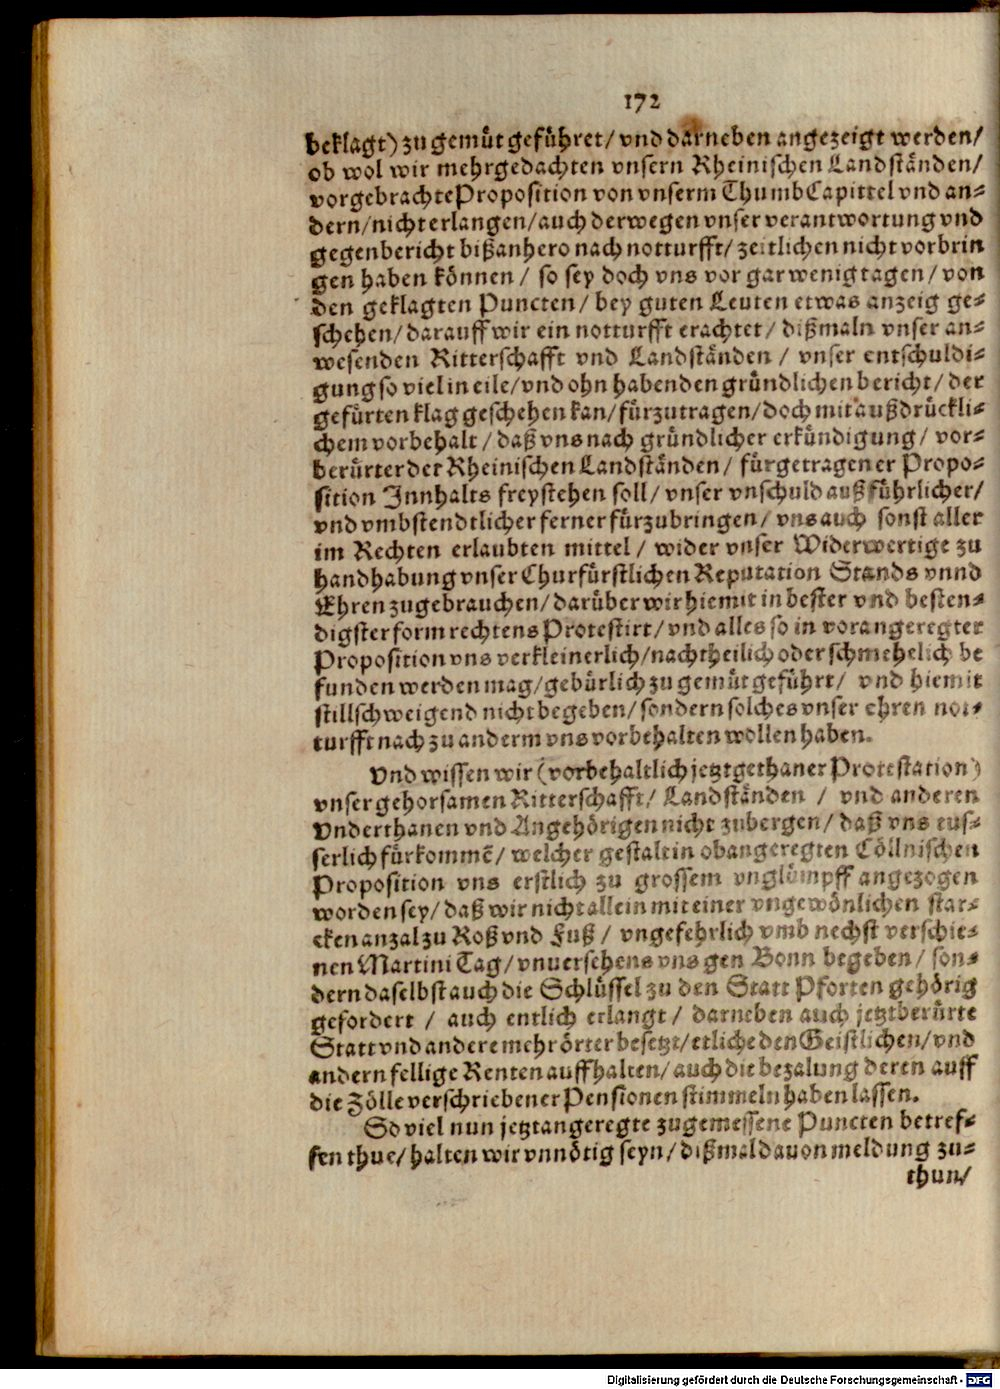 172
beklagt) zu gemüt geführet/ vnd darneben angezeigt werden/
ob wol wir mehrgedachten vnsern Rheinischen Landständen/
vorgebrachte Proposition von vnserm ThumbCapittel vnd an-
dern/ nicht erlangen/ auch derwegen vnser verantwortung vnd
gegenbericht bißanhero nach notturfft/ zeitlichen nicht vorbrin
gen haben können/ so sey doch vns vor gar wenig tagen/ von
den geklagten Puncten/ bey guten Leuten etwas anzeig ge-
schehen/ darauff wir ein notturfft erachtet/ dißmaln vnser an-
wesenden Ritterschafft vnd Landständen/ vnser entschuldi-
gung so viel in eile/ vnd ohn habenden gründlichen bericht/ der
gefürten klag geschehen kan/ fürzutragen/ doch mit außdrückli-
chem vorbehalt/ daß vns nach gründlicher erkündigung/ vor-
berürter der Rheinischen Landständen/ fürgetragener Propo-
sition Innhalts freystehen soll/ vnser vnschuld außführlicher/
vnd vmbstendtlicher ferner fürzubringen/ vns auch sonst aller
im Rechten erlaubten mittel/ wider vnser Widerwertige zu
handhabung vnser Churfürstlichen Reputation Stands vnnd
Ehren zugebrauchen/ darüber wir hiemit in bester vnd besten-
digster form rechtens Protestirt/ vnd alles so in vorangeregter
Proposition vns verkleinerlich/ nachtheilich oder schmehelich be
funden werden mag/ gebürlich zu gemüt geführt/ vnd hiemit
stillschweigend nicht begeben/ sondern solches vnser ehren not-
turfft nach zu anderm vns vorbehalten wollen haben.
Vnd wissen wir (vorbehaltlich jetztgethaner Protestation)
vnser gehorsamen Ritterschafft/ Landständen / vnd anderen
Vnderthanen vnd Angehörigen nicht zubergen/ daß vns eus-
serlich fürkommē/ welcher gestalt in obangeregten Cöllnischen
Proposition vns erstlich zu grossem vnglümpff angezogen
worden sey/ daß wir nicht allein mit einer vngewönlichen star-
cken anzal zu Roß vnd Fuß/ vngefehrlich vmb nechst verschie-
nen Martini Tag/ vnuersehens vns gen Bonn begeben/ son-
dern daselbst auch die Schlüssel zu den Statt Pforten gehörig
gefordert / auch entlich erlangt/ darneben auch jetztberürte
Statt vnd andere mehr örter besetzt/ etliche den Geistlichen/ vnd
andern fellige Renten auffhalten/ auch die bezalung deren auff
die Zölle verschriebener Pensionen stimmeln haben lassen.
So viel nun jetztangeregte zugemessene Puncten betref-
fen thue/ halten wir vnnötig seyn/ dißmal dauon meldung zu-
thun/
Digitalisierung gefördert durch die Deutsche Forschungsgemeinschaft - DFG